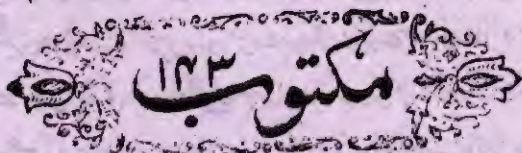 مکتوب ۱۴۳